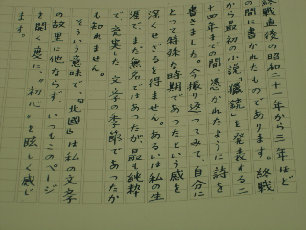 終戦直後の昭和二十一年から三年ほど
の間に書かれたものであります。終戦
から最初の小説「猟銃」を発表する二
十四年までの間、憑かれたように詩を
書きました。今振り返ってみて、自分に
とって特殊な時期であったという感を
深くせざるを得ません。あるいは私の生
涯でまだ無名ではあったが、最も純粋
で充実した文学の季節であったか
も知れません。
そういう意味で、「北國」は私の文学
の故里に他ならず、いつもこのページ
を開く度に"初心"を眩しく感じ
ます。